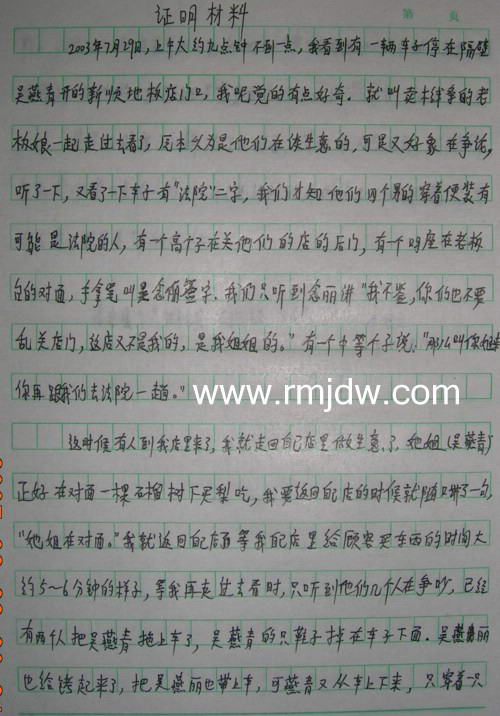 证明材料
第 页
2003年7月29日,上午大约九点钟不到一点,我看到有一辆车子停在隔壁
吴燕青开的新顺地板店门口,我呢觉的有点好奇.就叫卖木线条的老
板娘一起走过去看了,原本以为是他们在谈生意的,可是又好象在争论,
听了一下,又看了一下车子有"法院"二字,我们才知他们四个男的穿着便装有
可能是法院的人,有一个高个子在关他们的店的后门,有一个吗座在老板
的对面,手拿笔叫吴燕丽签字.我们只听到燕丽讲"我不签,你们也不要
乱关店门,这店又不是我的,是我姐姐的。"有一个中等个子说."那么叫你姐
你再跟我们去法院一趟。"
www.rmjdw.com
这时候有人到我店里来了,我就走回自己店里做生意了.她姐(吴燕青)
正好在对面一棵石榴树下买梨吃,我要返回自己店的时候就随口讲了一句,
"她姐在对面。"我就返回自己店了等我自己店里给顾客买东西的时间大
约5~6分钟的样子,等我再走过去看时,只听到他们几个人在争吵,已经
有两个人把吴燕青拖上车了,吴燕青的只鞋子掉在车子下面.吴燕丽
也给铐起来了,把吴燕丽也带上车,可燕青又从车上下来,只穿着一只